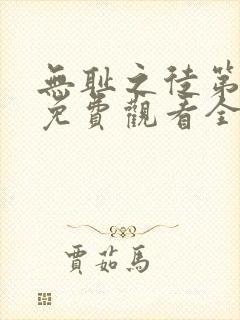 無耻之徒第
免費觀看全
賈茹馬